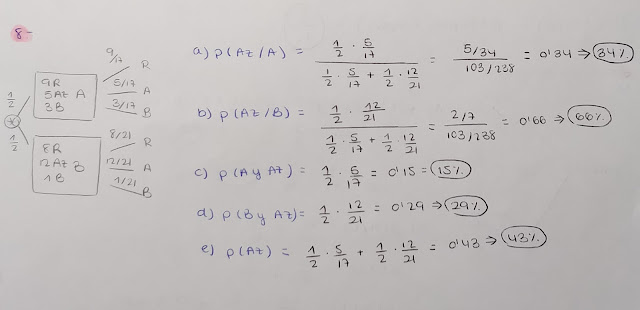 8-
9/17 R
1/2 9R 5/17 A
5Az A
3B 3/17 B
8/21 R
1/2 8R 12/21 A
12Az B
1B 1/21 B
a) p(Az/A) = (1/2 · 5/17) / (1/2 · 5/17 + 1/2 · 12/21) = (5/34) / (103/238) = 0'34 → 34%
b) p(Az/B) = (1/2 · 12/21) / (1/2 · 5/17 + 1/2 · 12/21) = (2/7) / (103/238) = 0'66 → 66%
c) p(A y Az) = 1/2 · 5/17 = 0'15 = 15%
d) p(B y Az) = 1/2 · 12/21 = 0'29 → 29%
e) p(Az) = 1/2 · 5/17 + 1/2 · 12/21 = 0'43 → 43%